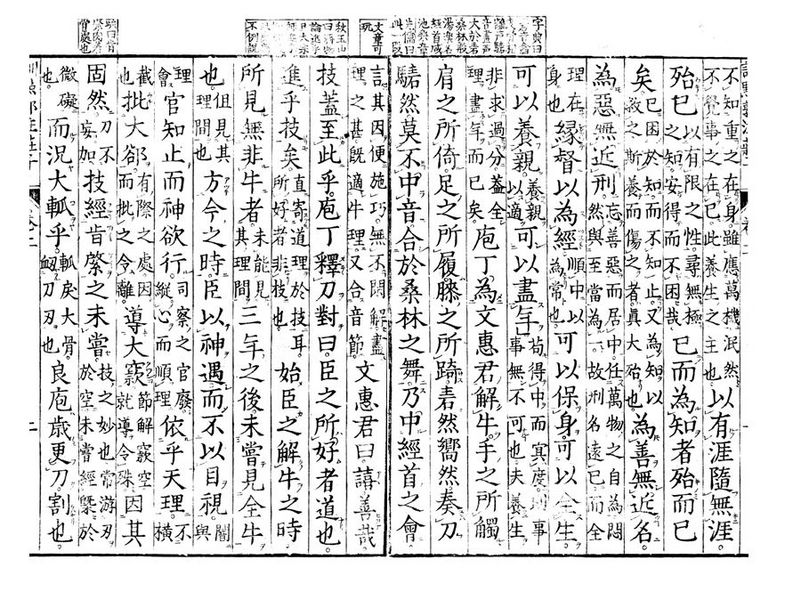 不知重之在身雖應萬機泯然不覺事之在已此養生之主也以有涯隨無涯
殆已以有限之性尋無極之知安得而不困哉已而為知者殆而已
矣已困於知而不知止又為知以救之斯養而傷之者真大殆也為善無近名
為惡無近刑忘善惡而居中任萬物之自為悶然與至當為一故刑名遠已而全
理在身也緣督以為經順中以為常也可以保身可以全生
可以養親養親以適可以盡年苟得中而冥度則事事無不可也夫養生
非求過分蓋全理盡年而已矣庖丁為文惠君解牛手之所觸
肩之所倚足之所履膝之所踦砉然嚮然奏刀
騞然莫不中音合於桑林之舞乃中經首之會
文章可玩
言其因便施巧無不閑解盡理之甚既適牛理又合音節文惠君曰譆善哉
技蓋至此乎庖丁釋刀對曰臣之所好者道也
進乎技矣直寄道理於技耳所好者非技也始臣之解牛之時
所見無非牛者未能見其理間三年之後未嘗見全牛
也但見其理間也方今之時臣以神遇而不以目視闇與
理官知止而神欲行司察之官廢縱心而順理依乎天理不橫
截也批大郤有際之處因而批之令離導大窾節解窾空就導令殊因其
固然刀不妄加技經肯綮之未嘗技之妙也常游刃於空未嘗經槩於
微礙也而況大軱乎軱戾大骨衄刀刃也良庖歲更刀割也
二